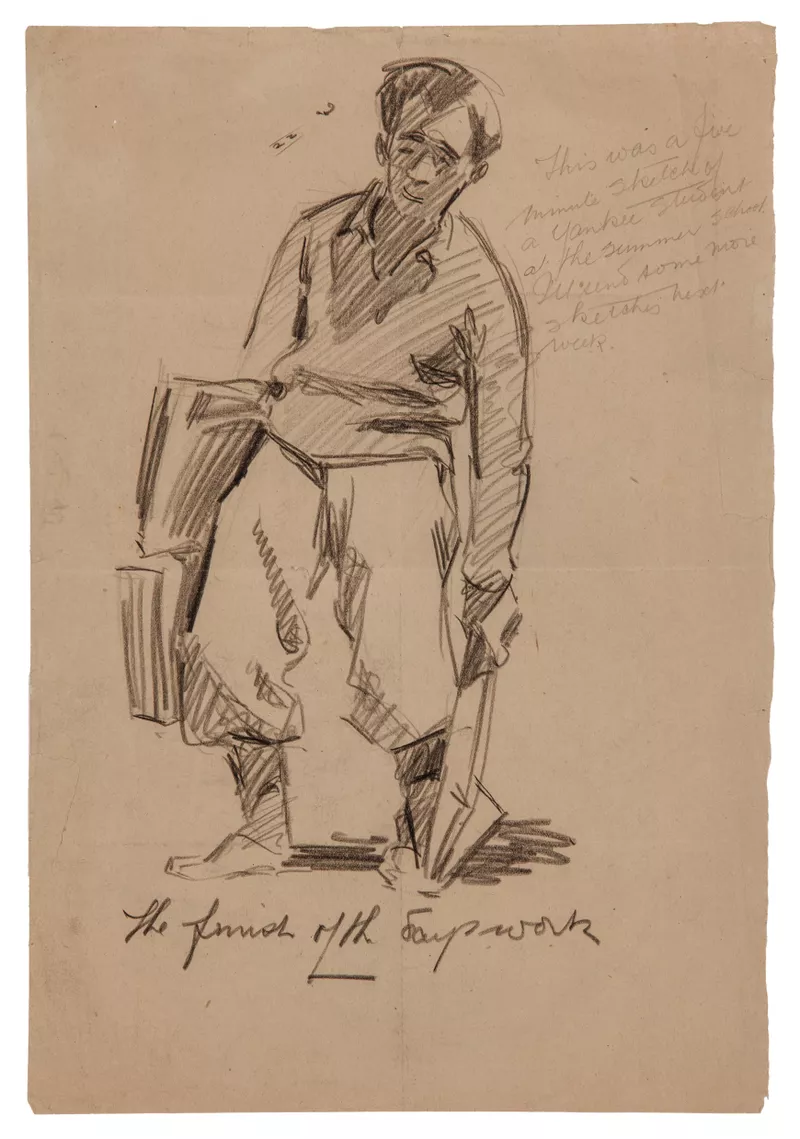 This was a five
minute sketch of
a Yankee Student
at the summer school
I'll send some more
sketches next
week.
The finish of th days work